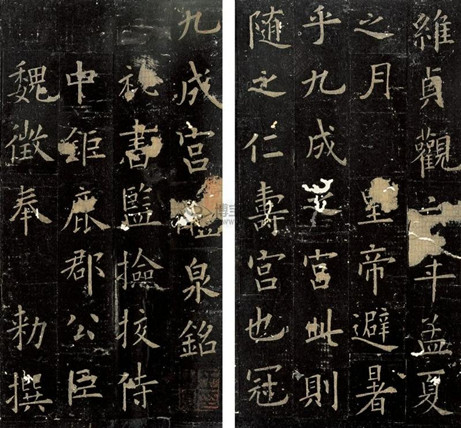 九成宮泉銘
秘書監撿挍侍
中鉅鹿郡公臣
魏徵奉 勑撰
維貞觀年孟夏
之月 皇帝避暑
乎九成之宮此則
隨之仁壽宮也冠